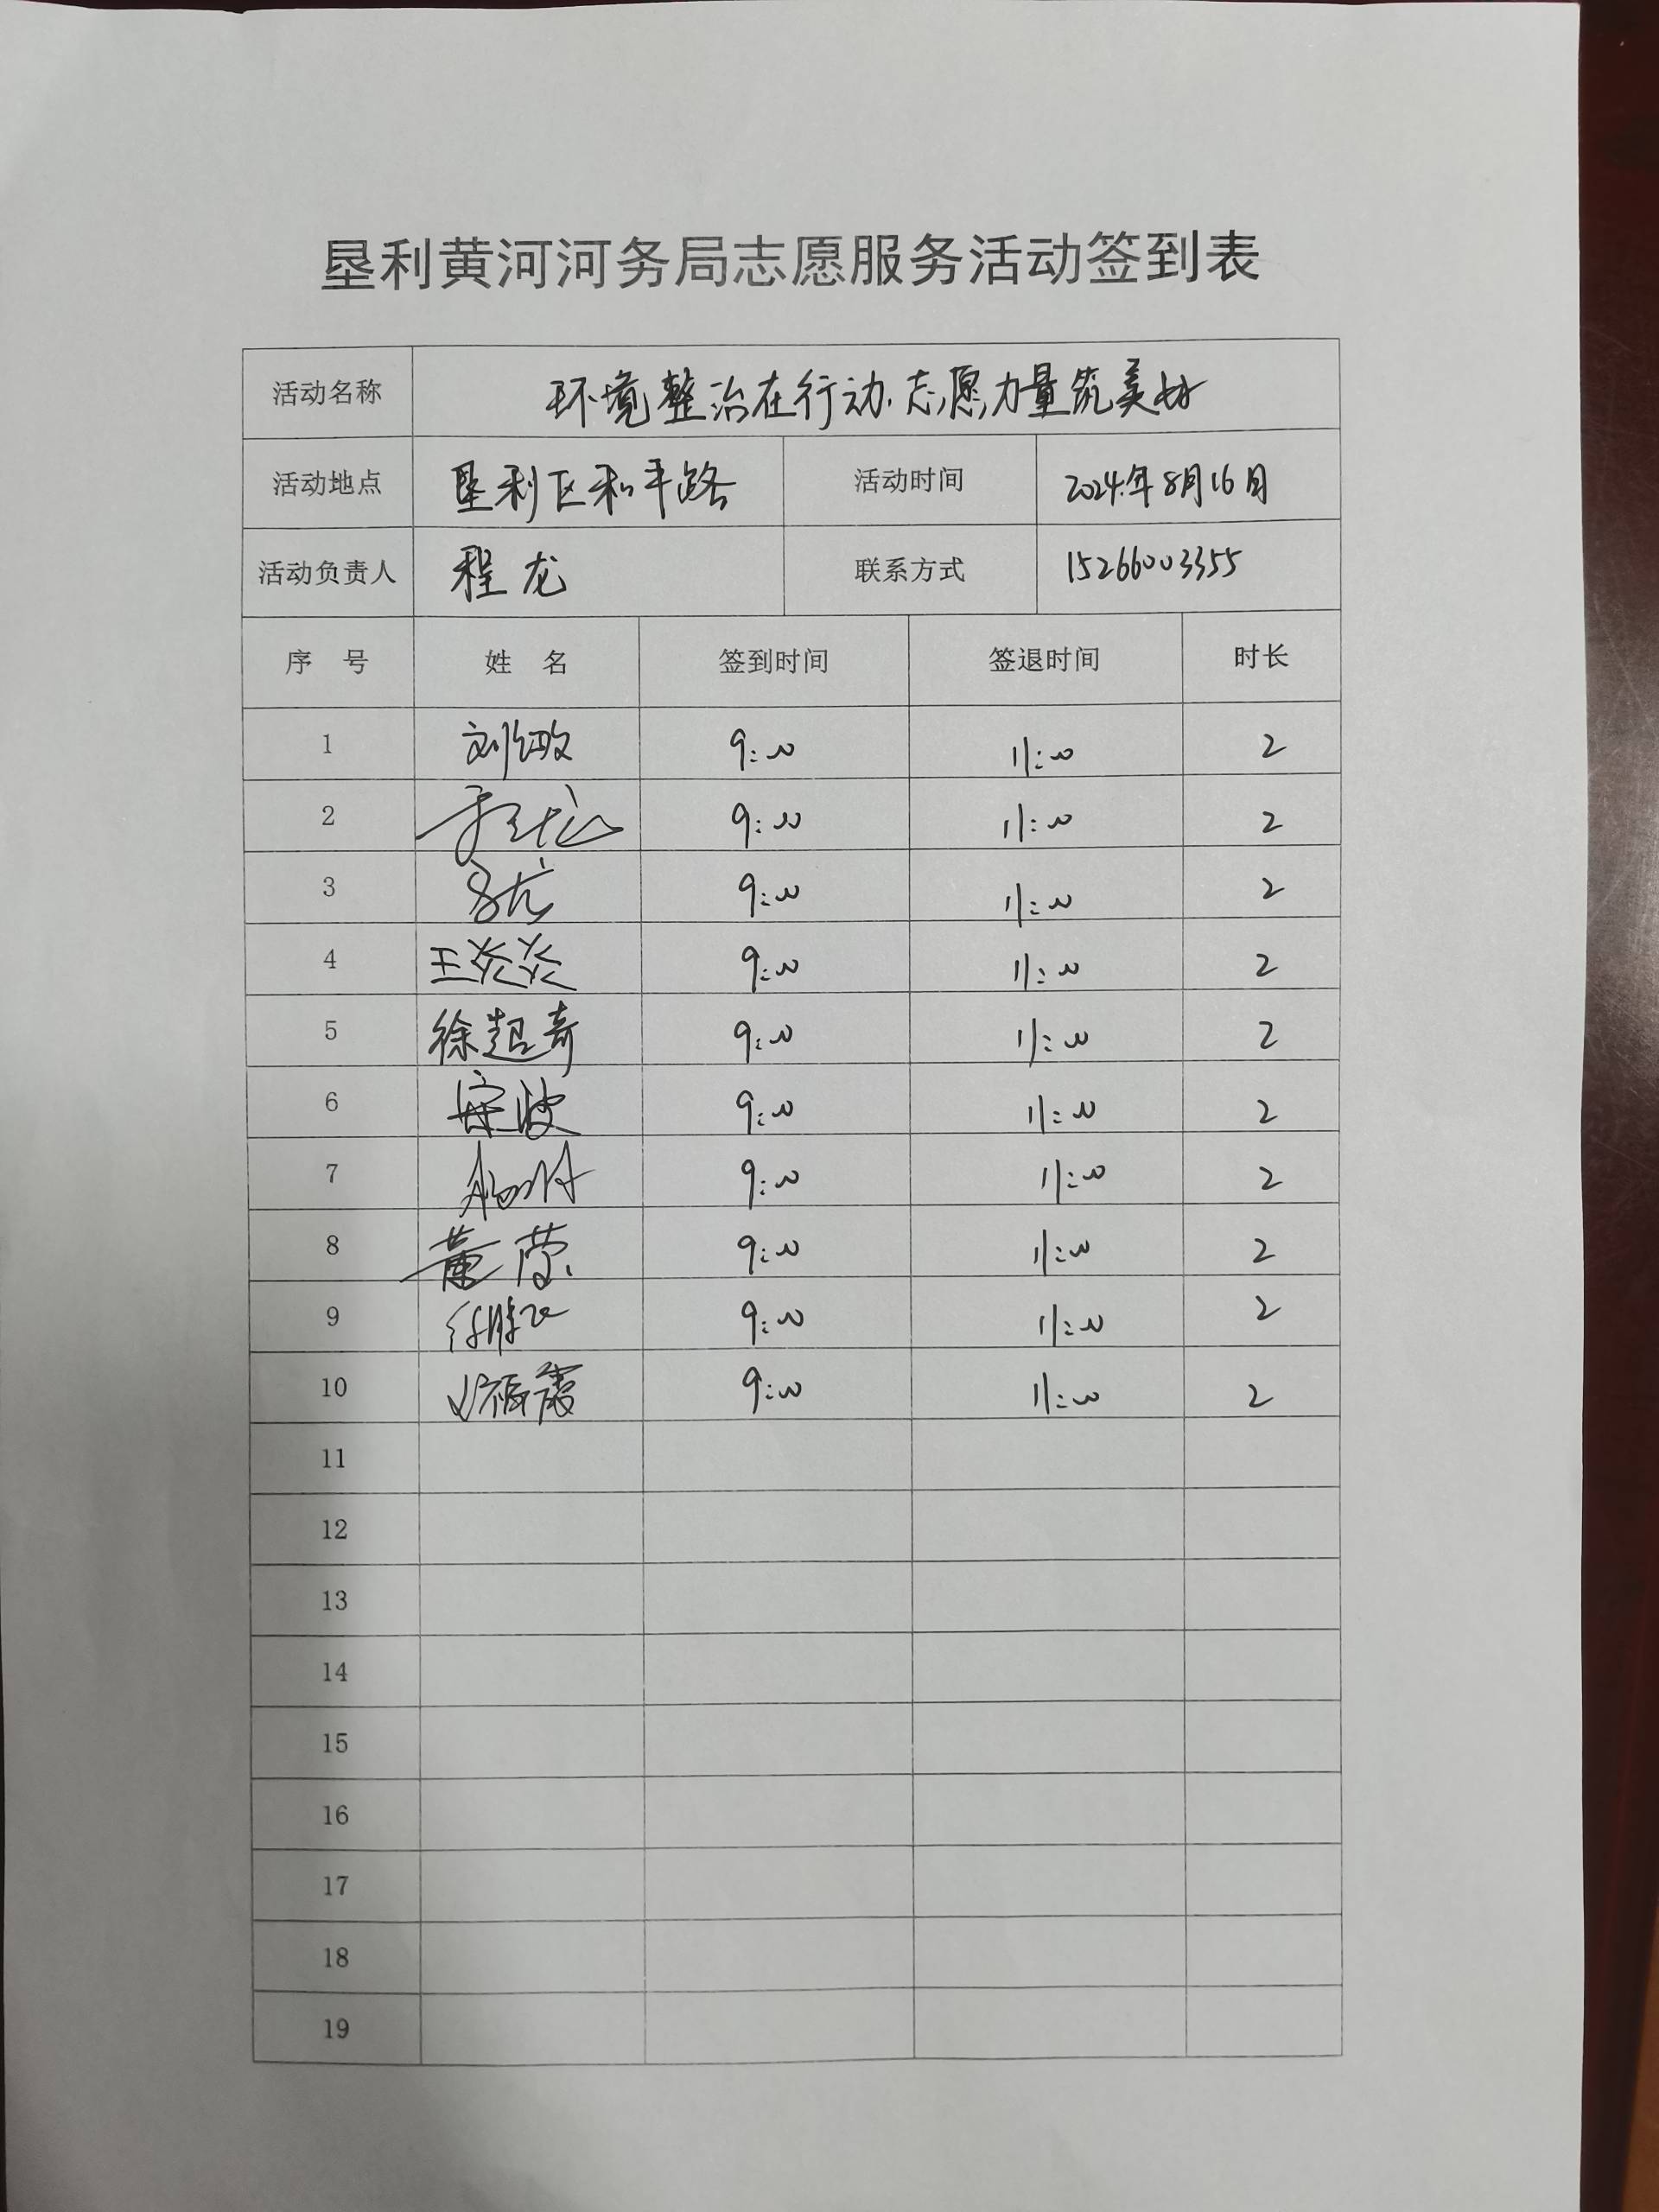 垦利黄河河务局志愿服务活动签到表
活动名称 环境整治在行动.志愿力量筑美好
活动地点 垦利区和平路 活动时间 2024年8月16日
活动负责人 程龙 联系方式 15266003355
序 号 姓 名 签到时间 签退时间 时长
1 9:00 11:00 2
2 9:00 11:00 2
3 9:00 11:00 2
4 王炎炎 9:00 11:00 2
5 徐超奇 9:00 11:00 2
6 9:00 11:00 2
7 9:00 11:00 2
8 董莹 9:00 11:00 2
9 9:00 11:00 2
10 9:00 11:00 2
11
12
13
14
15
16
17
18
19